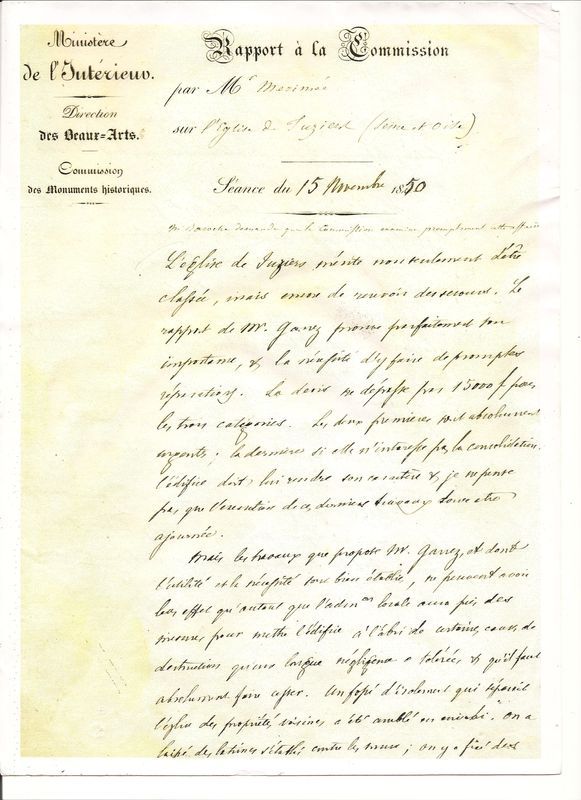 Ministère
de l'Intérieur.
Direction
des Beaux=Arts.
Commission
des Monuments historiques.
Rapport à la Commission
par Mr Merimée
sur l'Eglise de Juziers (Seine et Oise)
Séance du 15 Novembre 1850
M. Baroche demande que la Commission examine promptement cette affaire
L'église de Juziers mérite non seulement d'être
classée, mais encore de recevoir des secours. Le
rapport de Mr. Garrez prouve parfaitement son
importance, & la nécessité d'y faire de promptes
réparations. Le devis ne dépasse pas 15000 f pour
les trois catégories. Les deux premières sont absolument
urgentes; la dernière si elle n'intéresse pas la consolidation
l'édifice doit lui rendre son caractère & je ne pense
pas que l'exécution de ces derniers travaux doive être
ajournée.
Mais les travaux que propose Mr. Garrez, et dont
l'utilité et la nécessité sont bien établies, ne peuvent avoir
leur effet qu'autant que l'admon locale aura pris des
mesures pour mettre l'édifice à l'abri de certaines causes de
destruction qu'une longue négligence a tolérées & qu'il faut
absolument faire cesser. Un fossé d'isolement qui séparait
l'église des propriétés voisines a été comblé en remblai. On a
laissé des latrines s'établir contre les murs; on y a fixé des